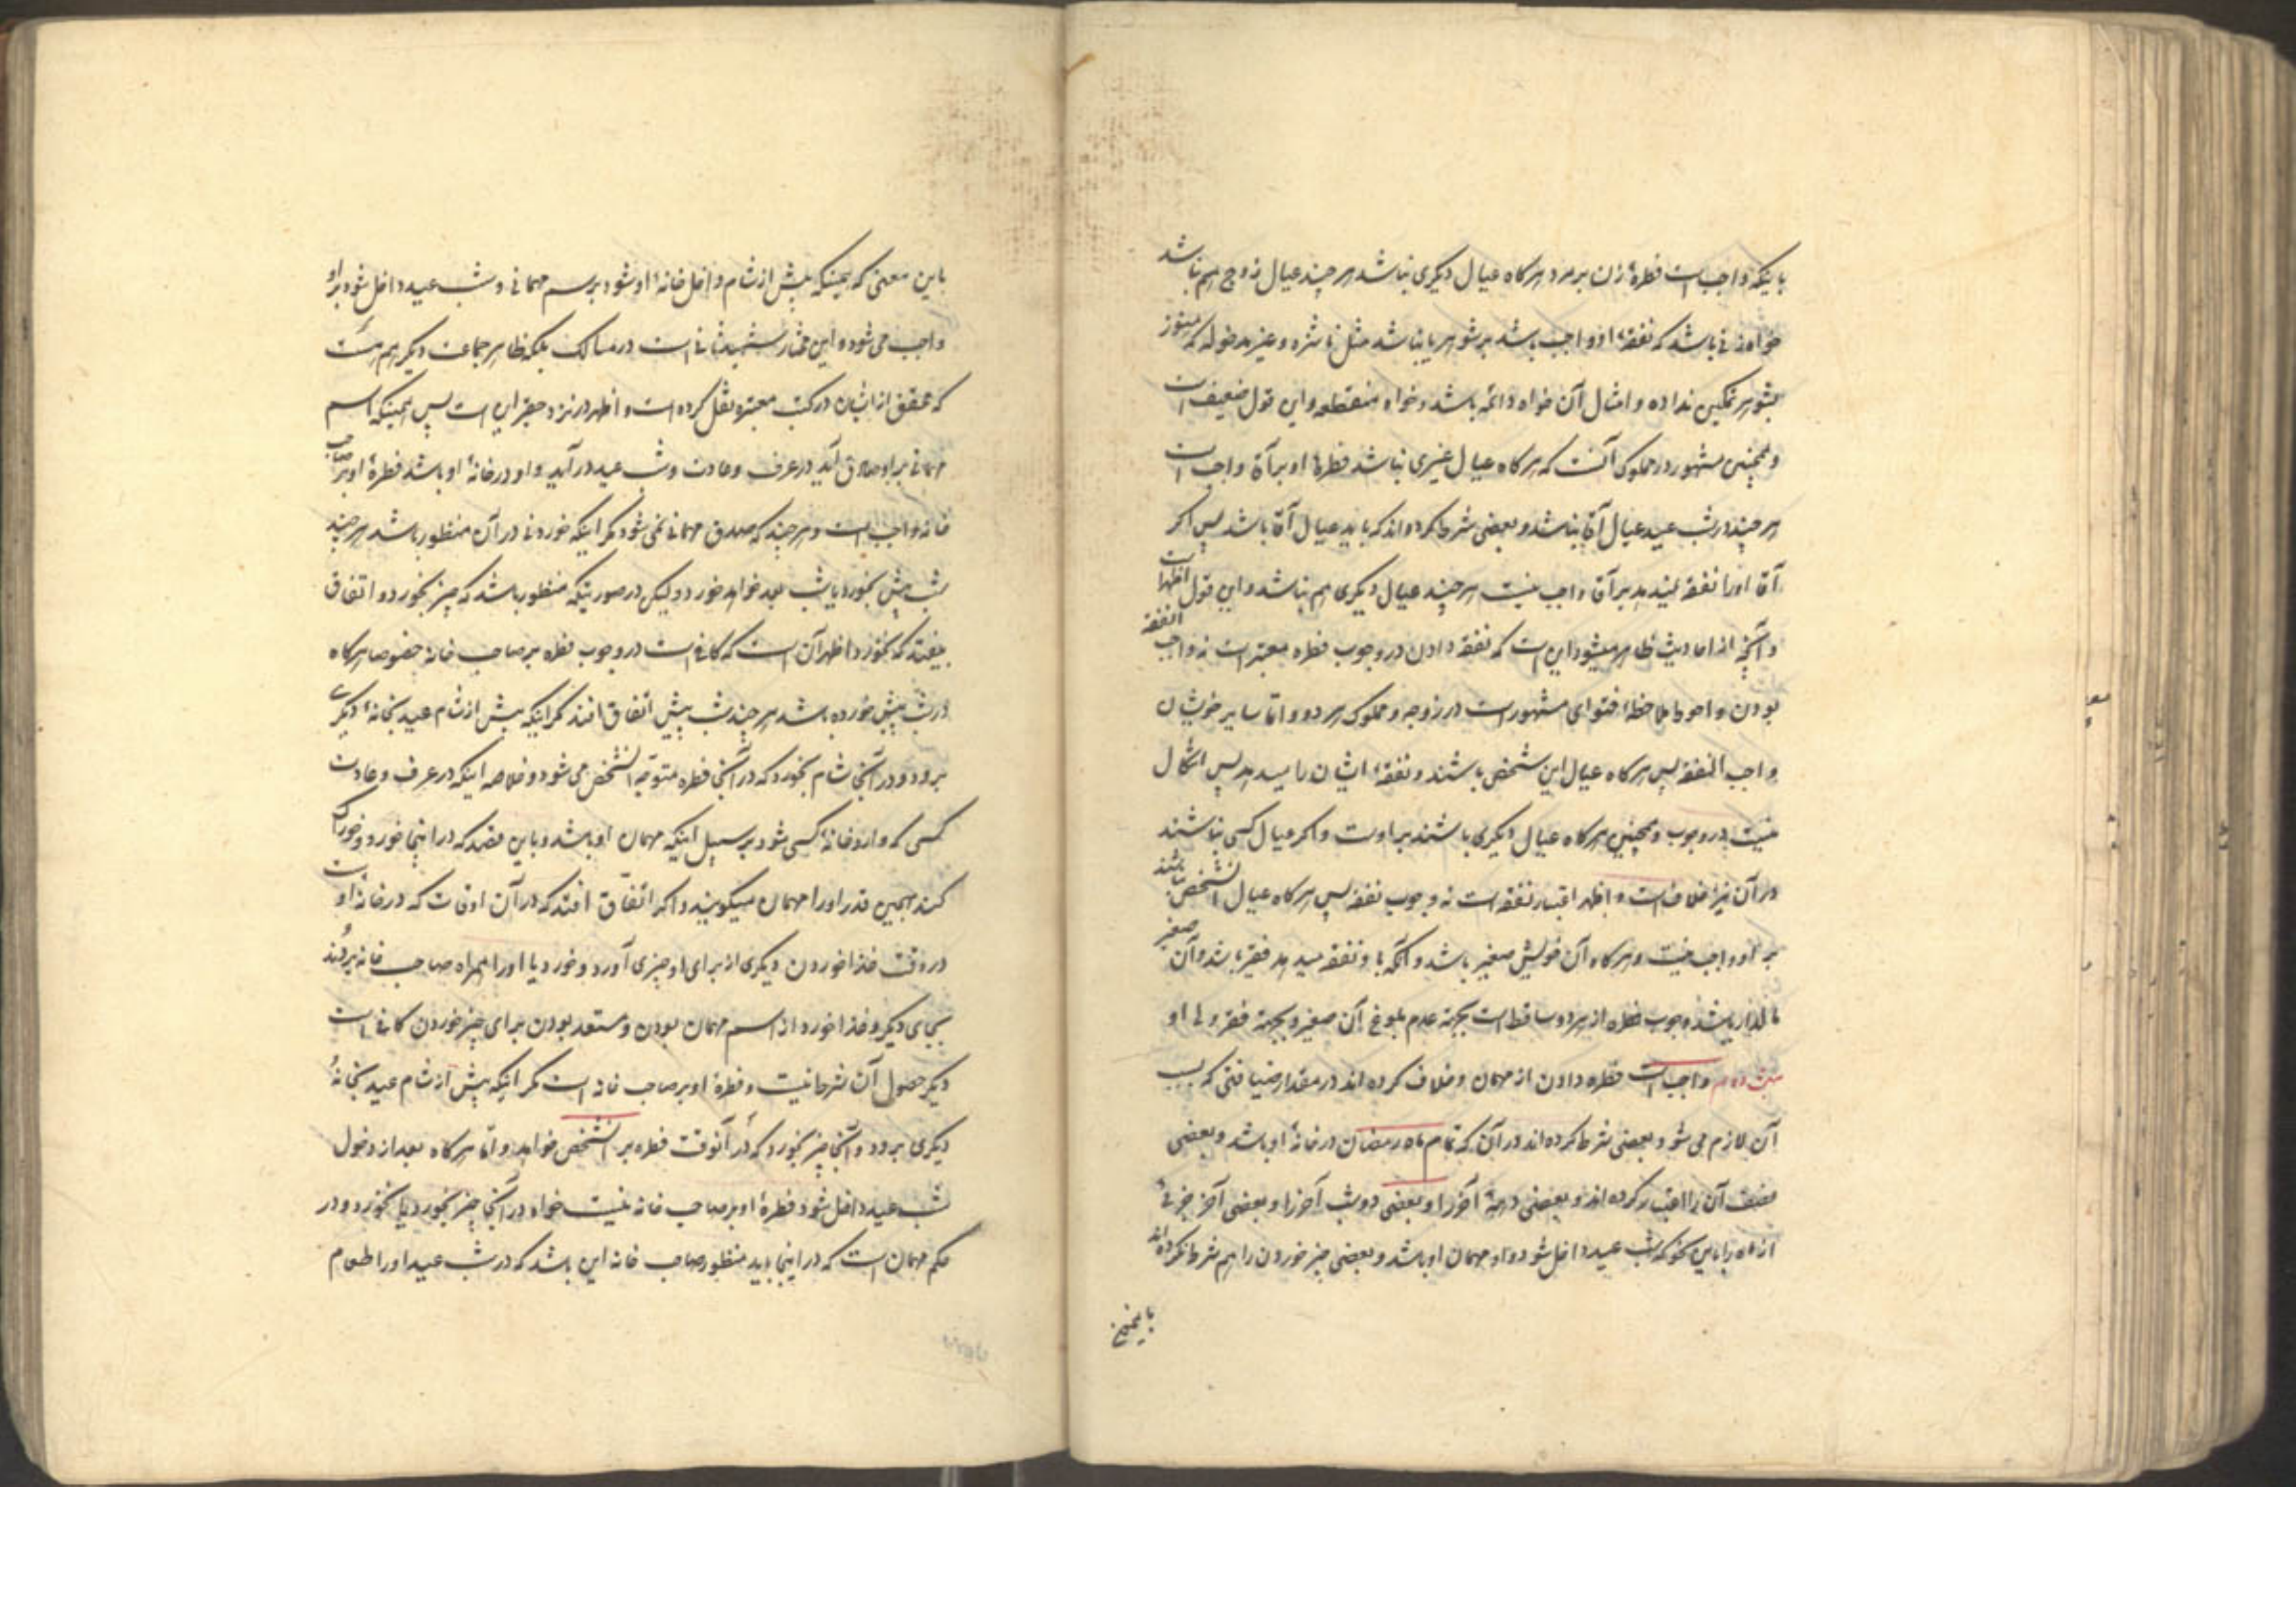 باینکه واجب است فطرهٔ زن بر مرد هر گاه عیال دیگری نباشد هر چند عیال زوج هم نباشد
خواه زنی باشد که نفقهٔ او واجب باشد بر شوهر یا نباشد مثل ناشزه و غیر مدخوله که هنوز
بشوهر تمکین نداده و امثال آن خواه دائمه باشد و خواه منقطعه و این قول ضعیف است
و همچنین مشهور در مملوک آنست که هر گاه عیال غیری نباشد فطرهٔ او بر آقا واجب است
هر چند در شب عید عیال آقا نباشد و بعضی شرط کرده اند که باید عیال آقا باشد پس اگر
آقا او را نفقه نمیدهد بر آقا واجب نیست هر چند عیال دیگری هم نباشد و این قول اظهر است
و آنچه از احادیث ظاهر میشود این است که نفقه دادن در وجوب فطره معتبر است نه واجب النفقه
بودن و احوط ملاحظهٔ فتوای مشهور است در زوجه و مملوک هر دو و اما سایر خویشان
واجب النفقه پس هر گاه عیال این شخص باشند و نفقهٔ ایشان را میدهد پس اشکال
نیست در وجوب و همچنین هر گاه عیال دیگری باشند بر اوست و اگر عیال کسی نباشند
در آن نیز خلاف است و اظهر اعتبار نفقه است نه وجوب نفقه پس هر گاه عیال آنشخص نباشند
بر او واجب نیست و هر گاه آن خویش صغیر باشد و آنکه باو نفقه میدهد فقیر باشد و آن صغیر
مالدار باشد وجوب فطره از هر دو ساقط است بجهة عدم بلوغ آن صغیر و بجهة فقر ولی او
واجب است فطره دادن از مهمان و خلاف کرده اند در مقدار ضیافتی که بسبب
آن لازم می شود بعضی شرط کرده اند در آن که تمام ماه رمضان در خانهٔ او باشد و بعضی
نصف آن را اعتبار کرده اند و بعضی دههٔ آخر را و بعضی دو شب آخر را و بعضی آخر جزئی
از ماه را باین نحو که شب عید داخل شود و او مهمان او باشد و بعضی چیز خوردن را هم شرط نکرده اند
باین معنی که همینکه پیش از شام داخل خانهٔ او شود برسم مهمانی و شب عید داخل شود بر او
واجب می شود و این مختار شهید ثانی است در مسالک بلکه ظاهر جماعت دیگر هم هست
که محقق از ایشان در کتب معتبره نقل کرده است و اظهر در نزد حقیر این است پس همینکه اسم
مهمانی بر او صادق آید در عرف و عادت و شب عید در آید و او در خانهٔ او باشد فطرهٔ او بر صاحب
خانه واجب است و هر چند که صدق مهمانی نمی شود مگر اینکه خوردنی در آن منظور باشد هر چند
شب پیش بخورد یا شب بعد خواهد خورد و لیکن در صورتیکه منظور باشد که چیز بخورد و اتفاق
بیفتد که نخورد اظهر آن است که کافی است در وجوب فطره بر صاحب خانه خصوصا هر گاه
در شب پیش خورده باشد هر چند شب پیش اتفاق افتد مگر اینکه پیش از شام عید بخانهٔ دیگری
برود و در آنجا شام بخورد که در آنجا فطره متوجّه آنشخص می شود و خلاصه اینکه در عرف و عادت
کسی که وارد خانهٔ کسی شود بر سبیل اینکه مهمان او باشد و باین قصد که در اینجا خورد و خوراک
کند همین قدر او را مهمان میگویند و اگر اتّفاق افتد که در آن اوقات که در خانهٔ او است
در وقت غذا خوردن دیگری از برای او چیزی آورد و خورد یا او را همراه صاحب خانه بردند
بجای دیگر و غذا خورد از اسم مهمان بودن و مستعد بودن برای چیز خوردن کافی است
دیگر حصول آن شرط نیست و فطرهٔ او بر صاحب خانه است مگر اینکه پیش از شام عید بخانهٔ
دیگری برود و آنجا چیز بخورد که در آنوقت فطره بر آنشخص خواهد و امّا هر گاه بعد از دخول
شب عید داخل شود فطرهٔ او بر صاحب خانه نیست خواه در آنجا چیز بخورد یا نخورد و در
حکم مهمان است که در اینجا باید منظور صاحب خانه این باشد که در شب عید او را طعام